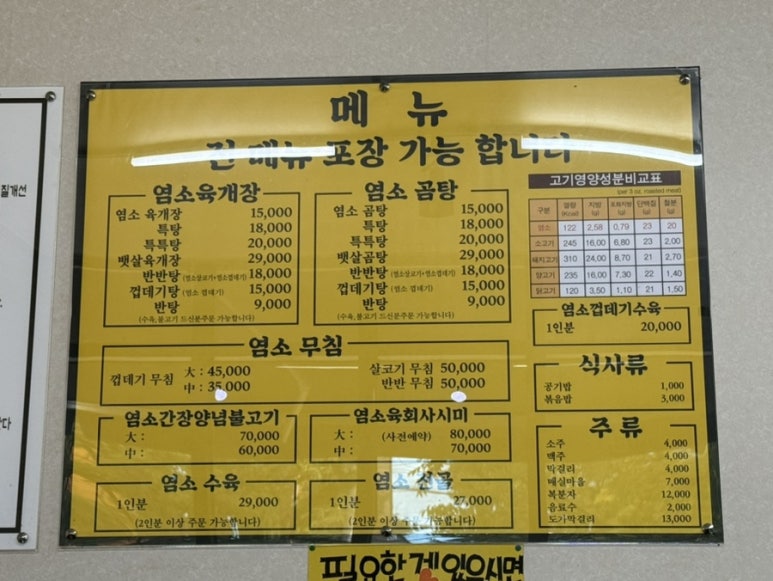 메 뉴
전 메뉴 포장 가능 합니다
염소육개장
염소 육개장 15,000
특탕 18,000
특특탕 20,000
뱃살육개장 29,000
반반탕 (염소살코기+염소껍데기) 18,000
껍데기탕 (염소 껍데기) 15,000
반탕 9,000
(수육,불고기 드신분주문 가능합니다)
염소 곰탕
염소 곰탕 15,000
특탕 18,000
특특탕 20,000
뱃살곰탕 29,000
반반탕 (염소살코기+염소껍데기) 18,000
껍데기탕 (염소 껍데기) 15,000
반탕 9,000
(수육,불고기 드신분주문 가능합니다)
고기영양성분비교표
(per 3 oz. roasted meat)
구분 열량(Kcal) 지방(g) 포화지방(g) 단백질(g) 철분(g)
염소 122 2,58 0,79 23 20
소고기 245 16,00 6,80 23 2,00
돼지고기 310 24,00 8,70 21 2,70
양고기 235 16,00 7,30 22 1,40
닭고기 120 3,50 1,10 21 1,50
염소껍데기수육
1인분 20,000
염소 무침
껍데기 무침 大 : 45,000
中 : 35,000
살코기 무침 50,000
반반 무침 50,000
식사류
공기밥 1,000
볶음밥 3,000
염소간장양념불고기
大 : 70,000
中 : 60,000
염소육회사시미
大 : (사전예약) 80,000
中 : 70,000
주 류
소주 4,000
맥주 4,000
막걸리 4,000
매실마을 7,000
복분자 12,000
음료수 2,000
도가막걸리 13,000
염소 수육
1인분 29,000
(2인분 이상 주문 가능합니다)
염소 전골
1인분 27,000
(2인분 이상 주문 가능합니다)
필요한게 있으시면
질개선